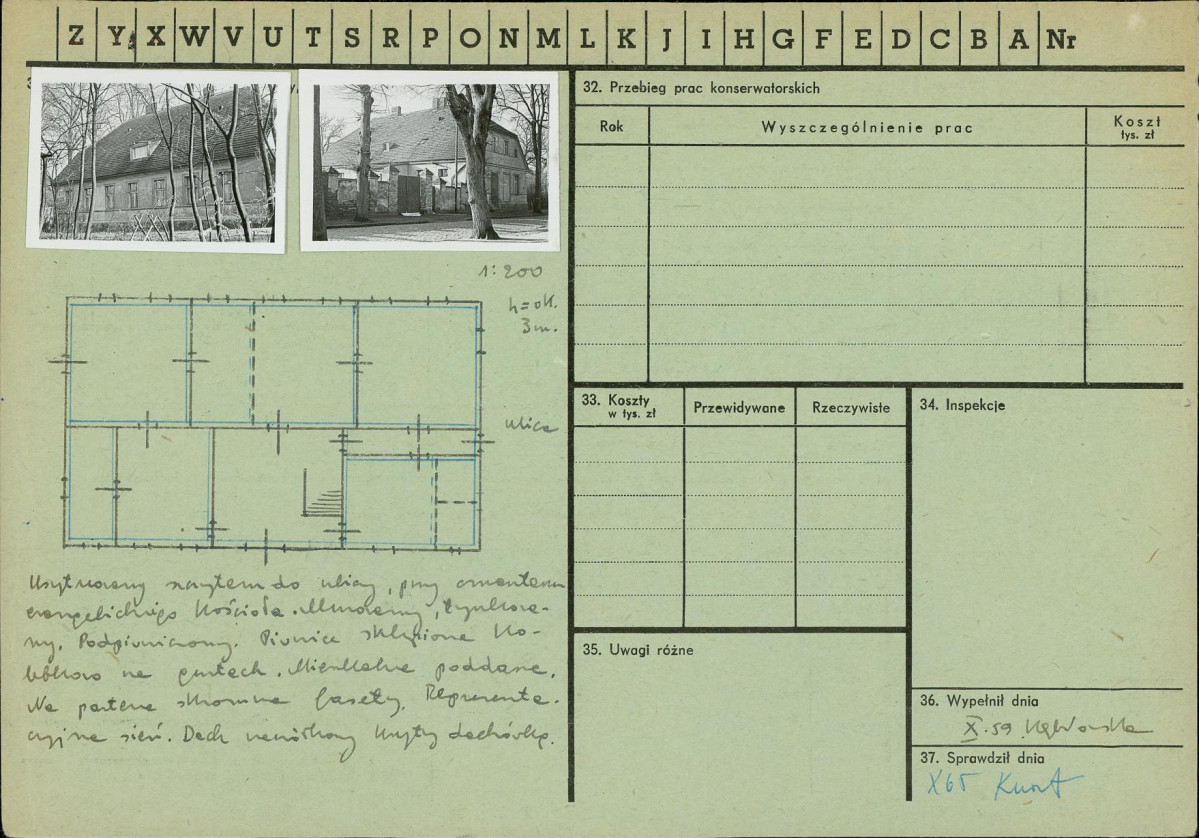 Z Y X W V U T S R P O N M L K J I H G F E D C B A Nr
32. Przebieg prac konserwatorskich
Rok
Wyszczególnienie prac
Koszt
tys. zł
1:200
h=ok.
3m.
ulica
Usytuowany szczytem do ulicy, przy cmentarzu
ewangelickiego kościoła. Murowany, tynkowa-
ny. Podpiwniczony. Piwnice sklepione ko-
lebkowo na gurtach. Mieszkalne poddasze.
Na parterze skromne fasety. Reprezenta-
cyjna sień. Dach naczółkowy kryty dachówką.
33. Koszty
w tys. zł
Przewidywane
Rzeczywiste
34. Inspekcje
35. Uwagi różne
36. Wypełnił dnia
X.59
37. Sprawdził dnia
X 65